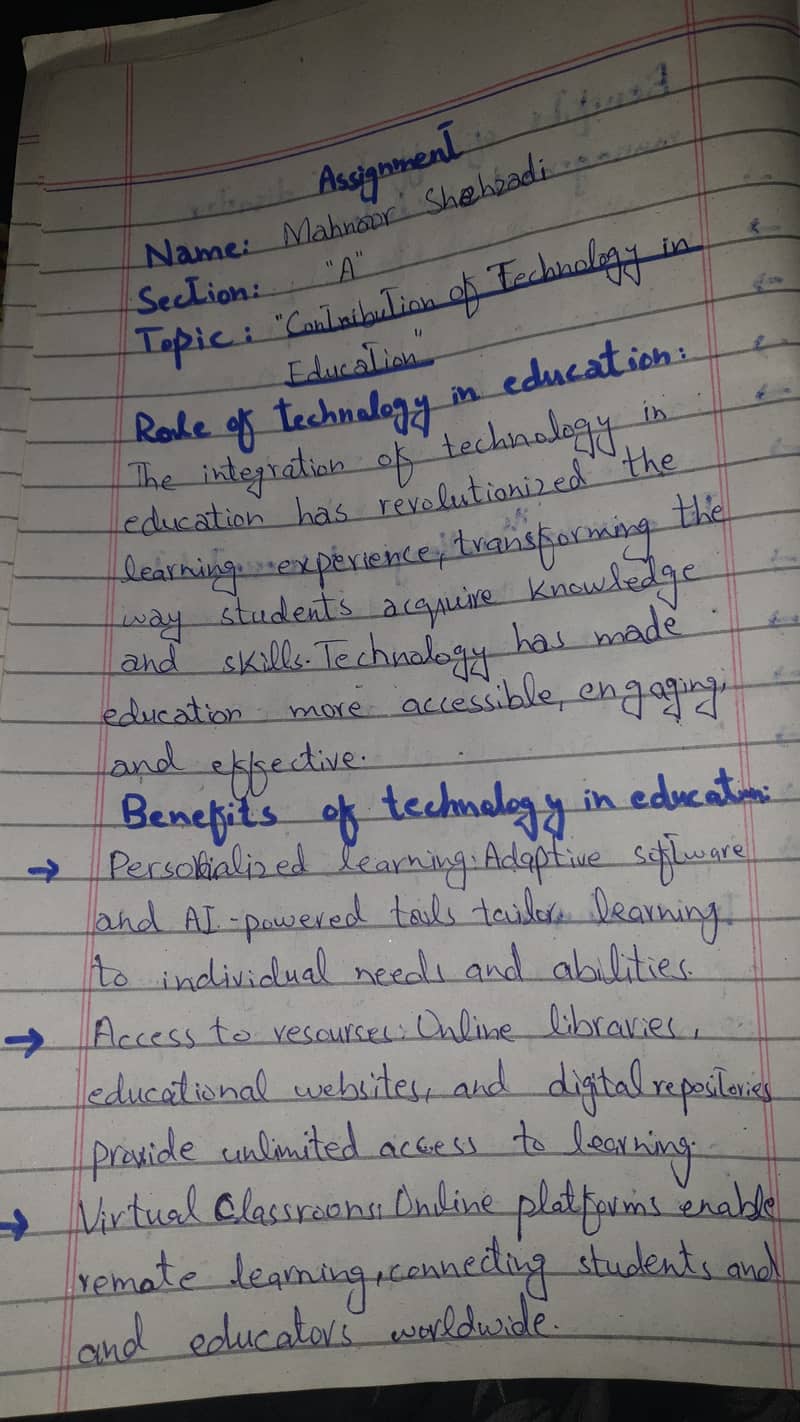 Assignment
Name: Mahnoor Shehzadi
Section: "A"
Topic: "Contribution of Technology in
Education"
Role of technology in education:
The integration of technology in
education has revolutionized the
learning experience, transforming the
way students acquire knowledge
and skills. Technology has made
education more accessible, engaging,
and effective.
Benefits of technology in education:
→ Personalized learning: Adaptive software
and AI-powered tools tailor learning
to individual needs and abilities.
→ Access to resourses: Online libraries,
educational websites, and digital repositories
provide unlimited access to learning.
→ Virtual Classroons: Online platforms enable
remote learning, connecting students and
and educators worldwide.